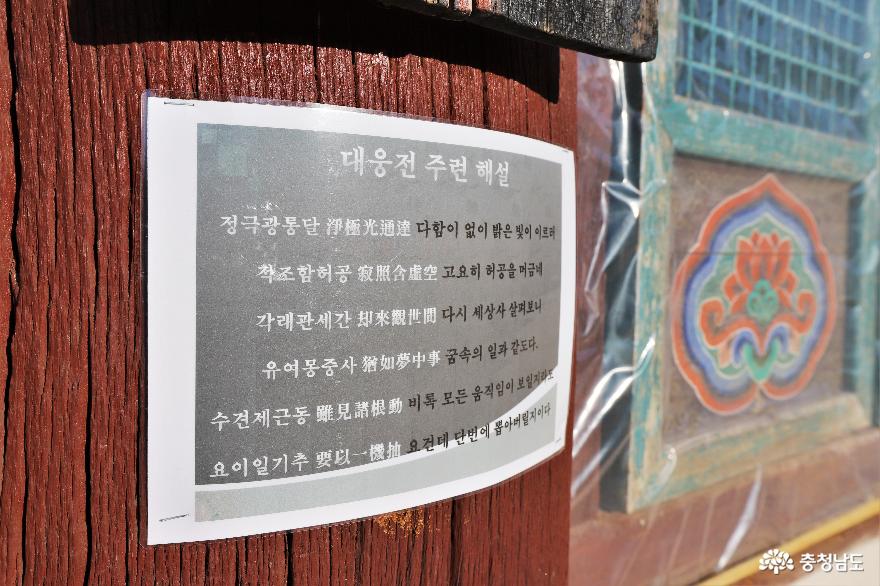 대웅전 주련 해설
정극광통달 淨極光通達 다함이 없이 밝은 빛이 이르러
척조함허공 寂照含虛空 고요히 허공을 머금네
각래관세간 却來觀世間 다시 세상사 살펴보니
유여몽중사 猶如夢中事 꿈속의 일과 같도다.
수견제근동 雖見諸根動 비록 모든 움직임이 보일지라도
요이일기추 要以一機抽 요건데 단번에 뽑아버릴지이다
충청남도